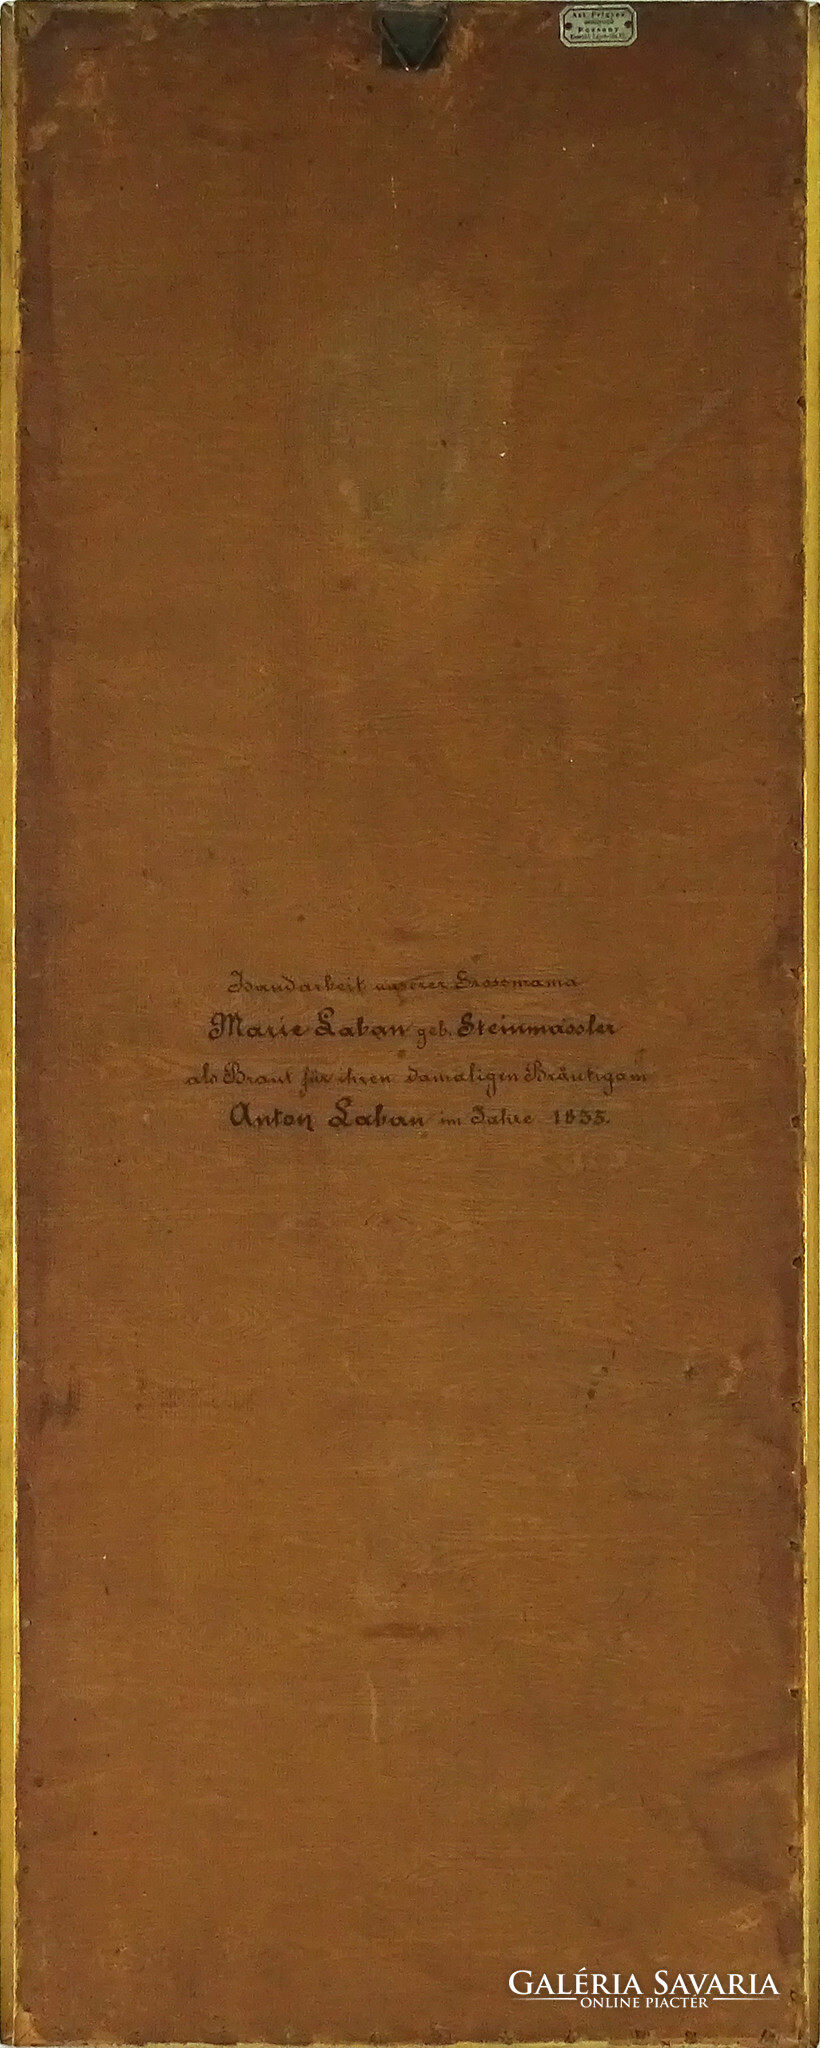 Ant. Prigner
Pozsony
Handarbeit unserer Grossmama
Marie Laban geb. Steinmassler
als Braut für ihren damaligen Bräutigam
Anton Laban im Jahre 1835.
GALÉRIA SAVARIA
ONLINE PIACTÉR